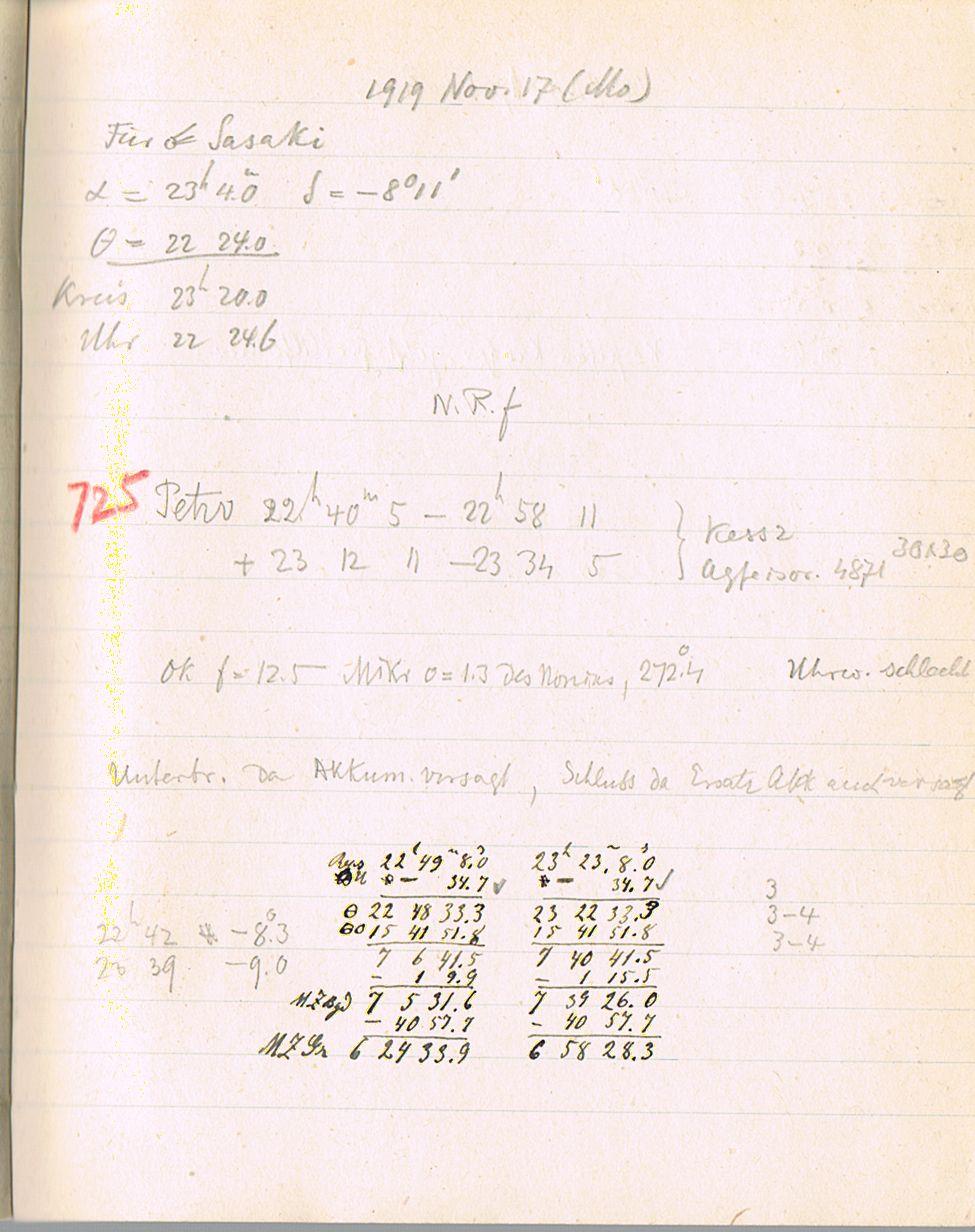 1919 Nov. 17 (Mo)
Für Sasaki
α = 23ʰ 4.ᵐ0 δ = −8°11′
θ = 22 24.0
Kreis 23ʰ 20.0
Uhr 22 24.6
N. R. f
725 Petro 22ʰ 40ᵐ 5 − 22ʰ 58 11
+ 23 12 11 − 23 34 5
} Kassz
4871 30x30
OK f = 12.5 Mikr 0 = 1.3 des Nonius, 272.°4 Uhrw. schlecht
Unterbr. da Akkum. versagt, Schluss da Ersatz Akk auch versagt
22ʰ 49ᵐ 8.ˢ0 23ʰ 23.ᵐ 8.ˢ0
− 34.7 ✓ − 34.7 ✓
3
θ 22 48 33.3 23 22 33.3
3–4
22ʰ 42 −8.°3
θ0 15 41 51.8 15 41 51.8
3–4
39 −9.0
7 6 41.5 7 40 41.5
− 1 9.9 − 1 15.5
MZ Bgd 7 5 31.6 7 39 26.0
− 40 57.7 − 40 57.7
MZ Gr 6 24 33.9 6 58 28.3